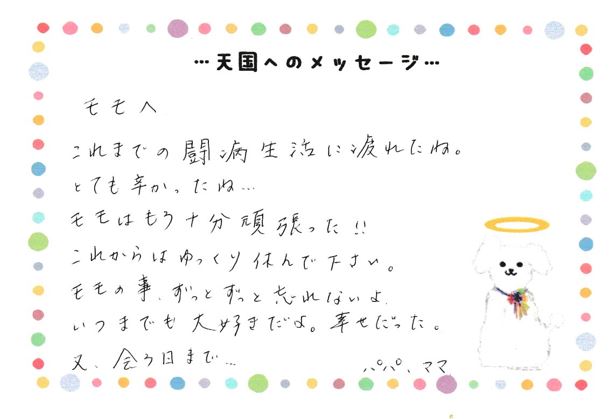 …天国へのメッセージ…
モモへ
これまでの闘病生活に疲れたね。
とても辛かったね…
モモはもう十分頑張った!!
これからはゆっくり休んで下さい。
モモの事、ずっとずっと忘れないよ、
いつまでも大好きだよ。幸せだった。
又、会う日まで…
パパ、ママ